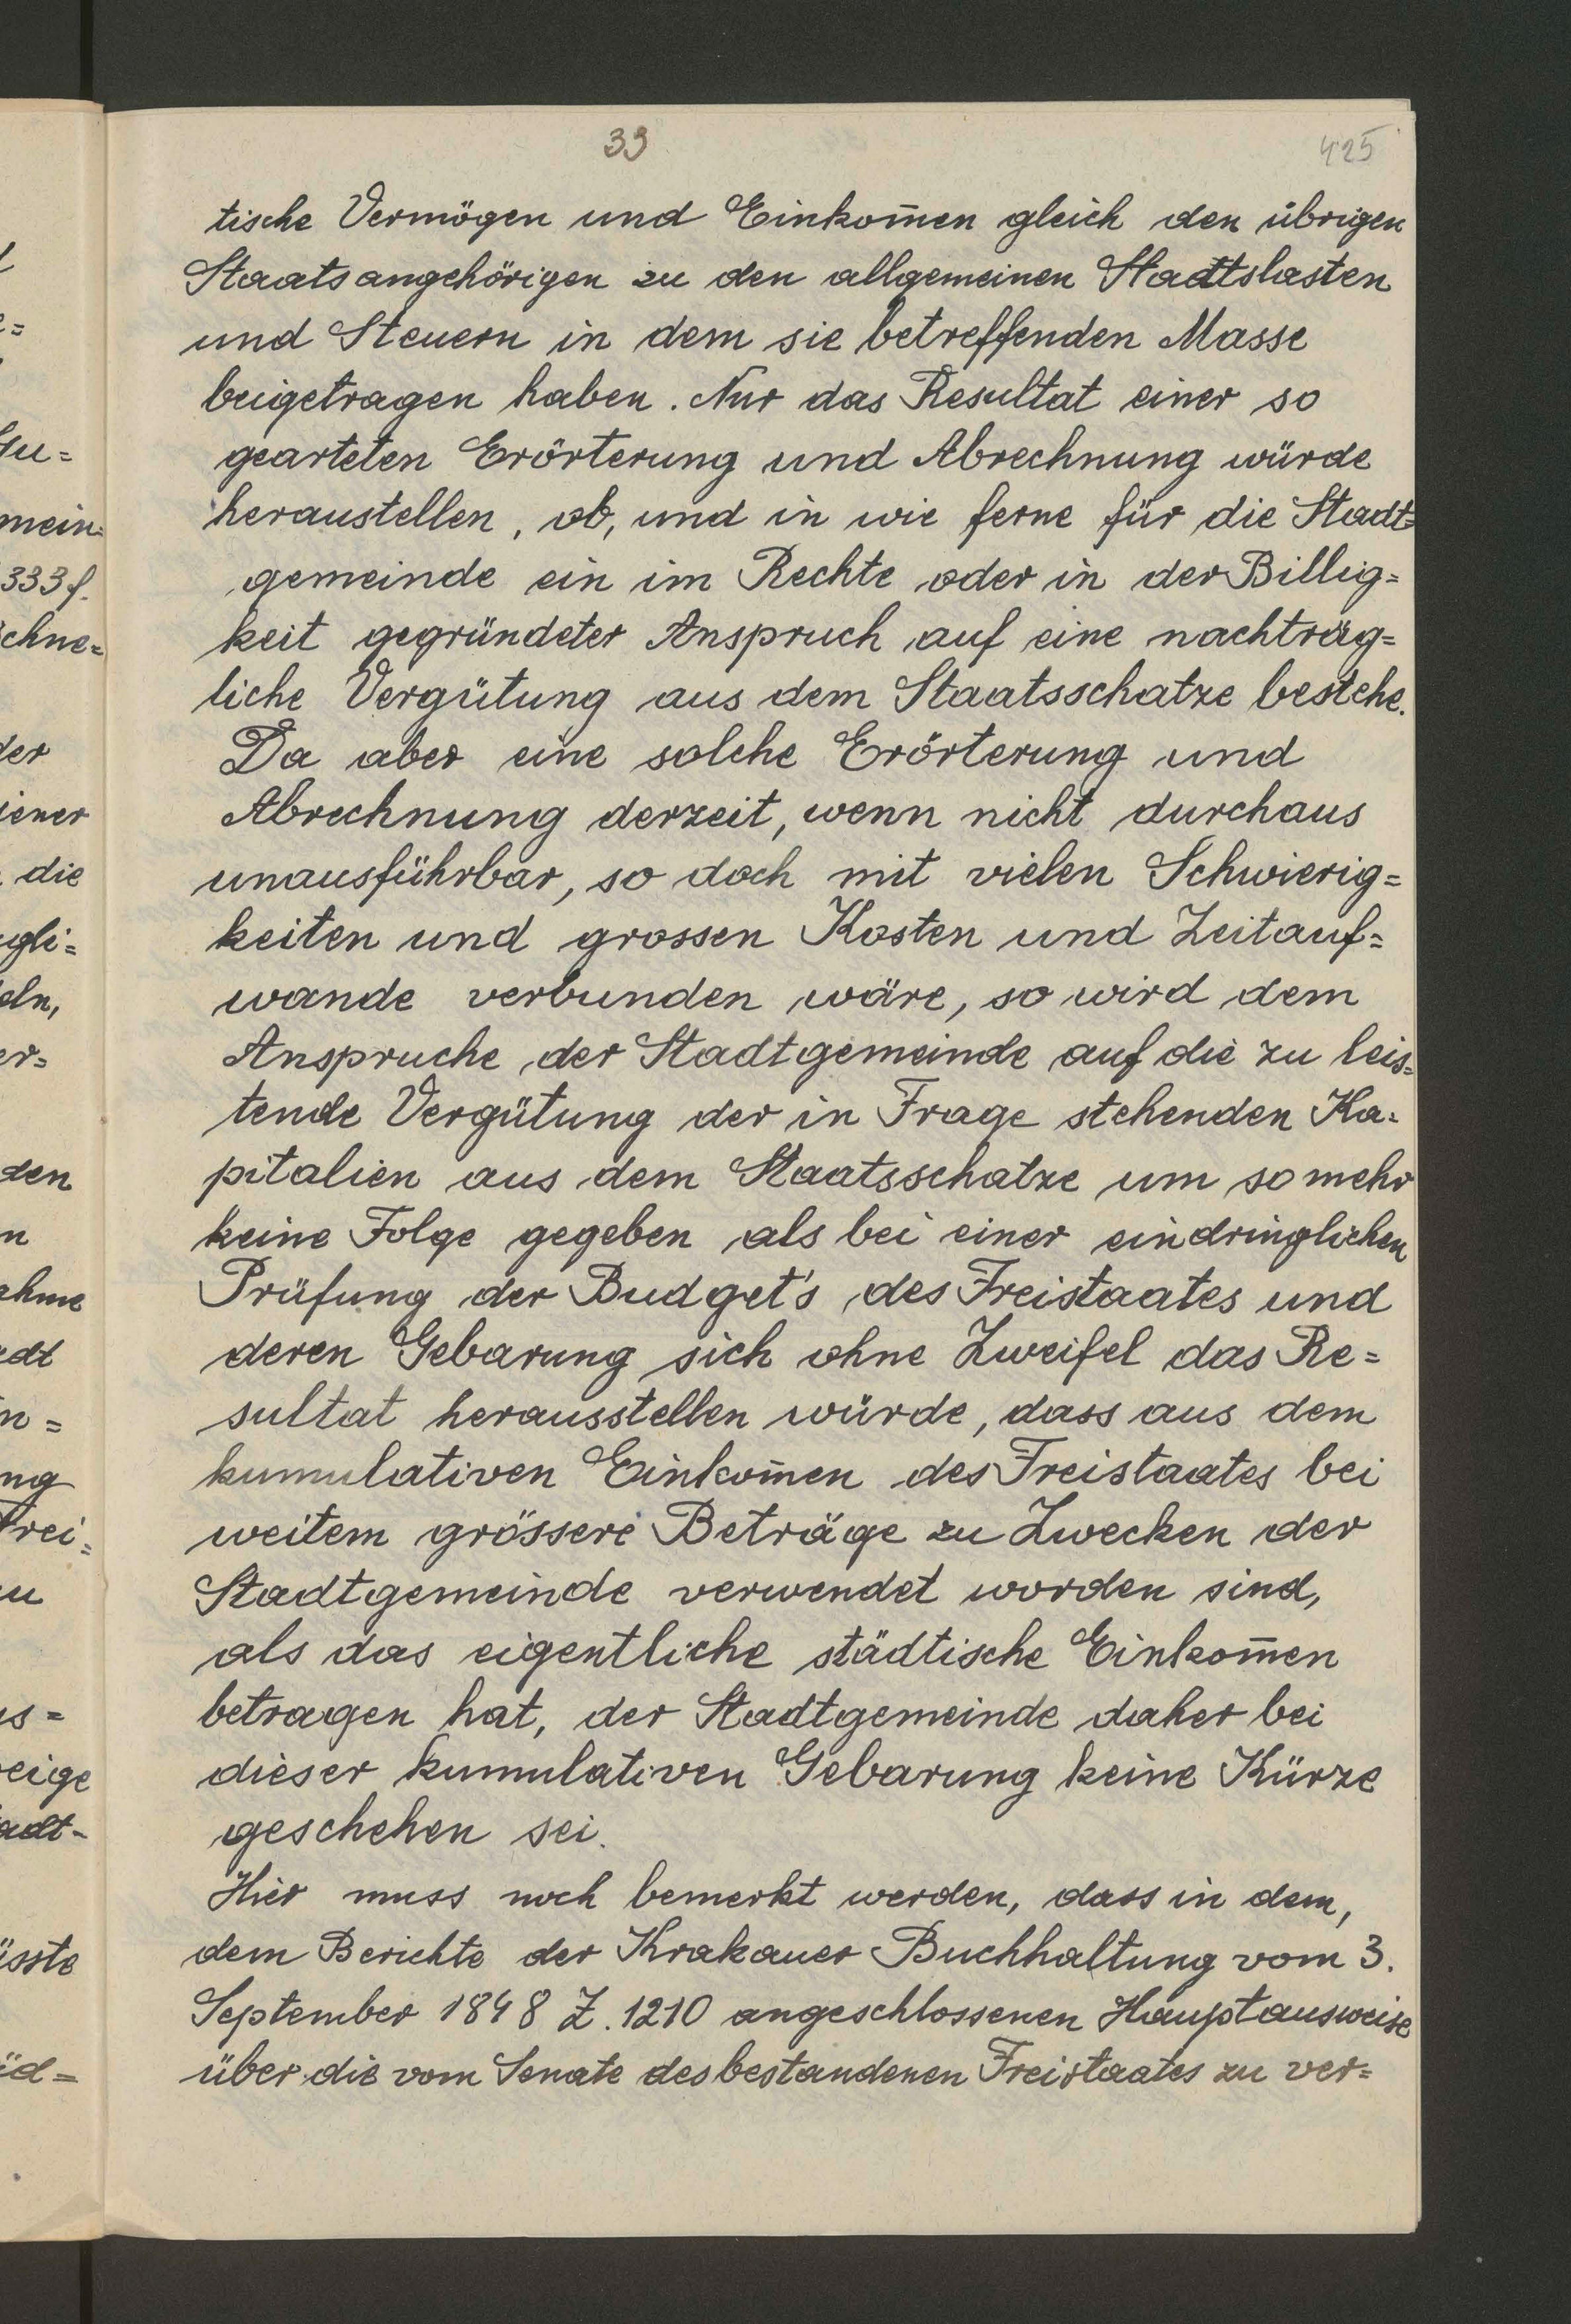 39
425
tische Vermögen und Einkom̄en gleich den übrigen
Staatsangehörigen zu den allgemeinen Stadtslasten
und Steuern in dem sie betreffenden Masse
beigetragen haben. Nur das Resultat einer so
gearteten Erörterung und Abrechnung würde
heraustellen, ob, und in wie ferne für die Stadt=
gemeinde ein im Rechte oder in der Billig=
keit gegründeter Anspruch auf eine nachträg=
liche Vergütung aus dem Staatsschatze bestehe.
Da aber eine solche Erörterung und
Abrechnung derzeit, wenn nicht durchaus
unausführbar, so doch mit vielen Schwierig=
keiten und grossen Kosten und Zeitauf=
wande verbunden wäre, so wird dem
Anspruche der Stadtgemeinde auf die zu leis=
tende Vergütung der in Frage stehenden Ka=
pitalien aus dem Staatsschatze um so mehr
keine Folge gegeben als bei einer eindringlichen
Prüfung der Budget's des Freistaates und
deren Gebarung sich ohne Zweifel das Re=
sultat herausstellen würde, dass aus dem
kumulativen Einkom̄en des Freistaates bei
weitem grössere Beträge zu Zwecken der
Stadtgemeinde verwendet worden sind,
als das eigentliche städtische Einkom̄en
betragen hat, der Stadtgemeinde daher bei
dieser kumulativen Gebarung keine Kürze
geschehen sei.
Hier muss noch bemerkt werden, dass in dem,
dem Berichte der Krakauer Buchhaltung vom 3.
September 1848 Z. 1210 angeschlossenen Hauptausweise
über die vom Senate des bestandenen Freistaates zu ver=